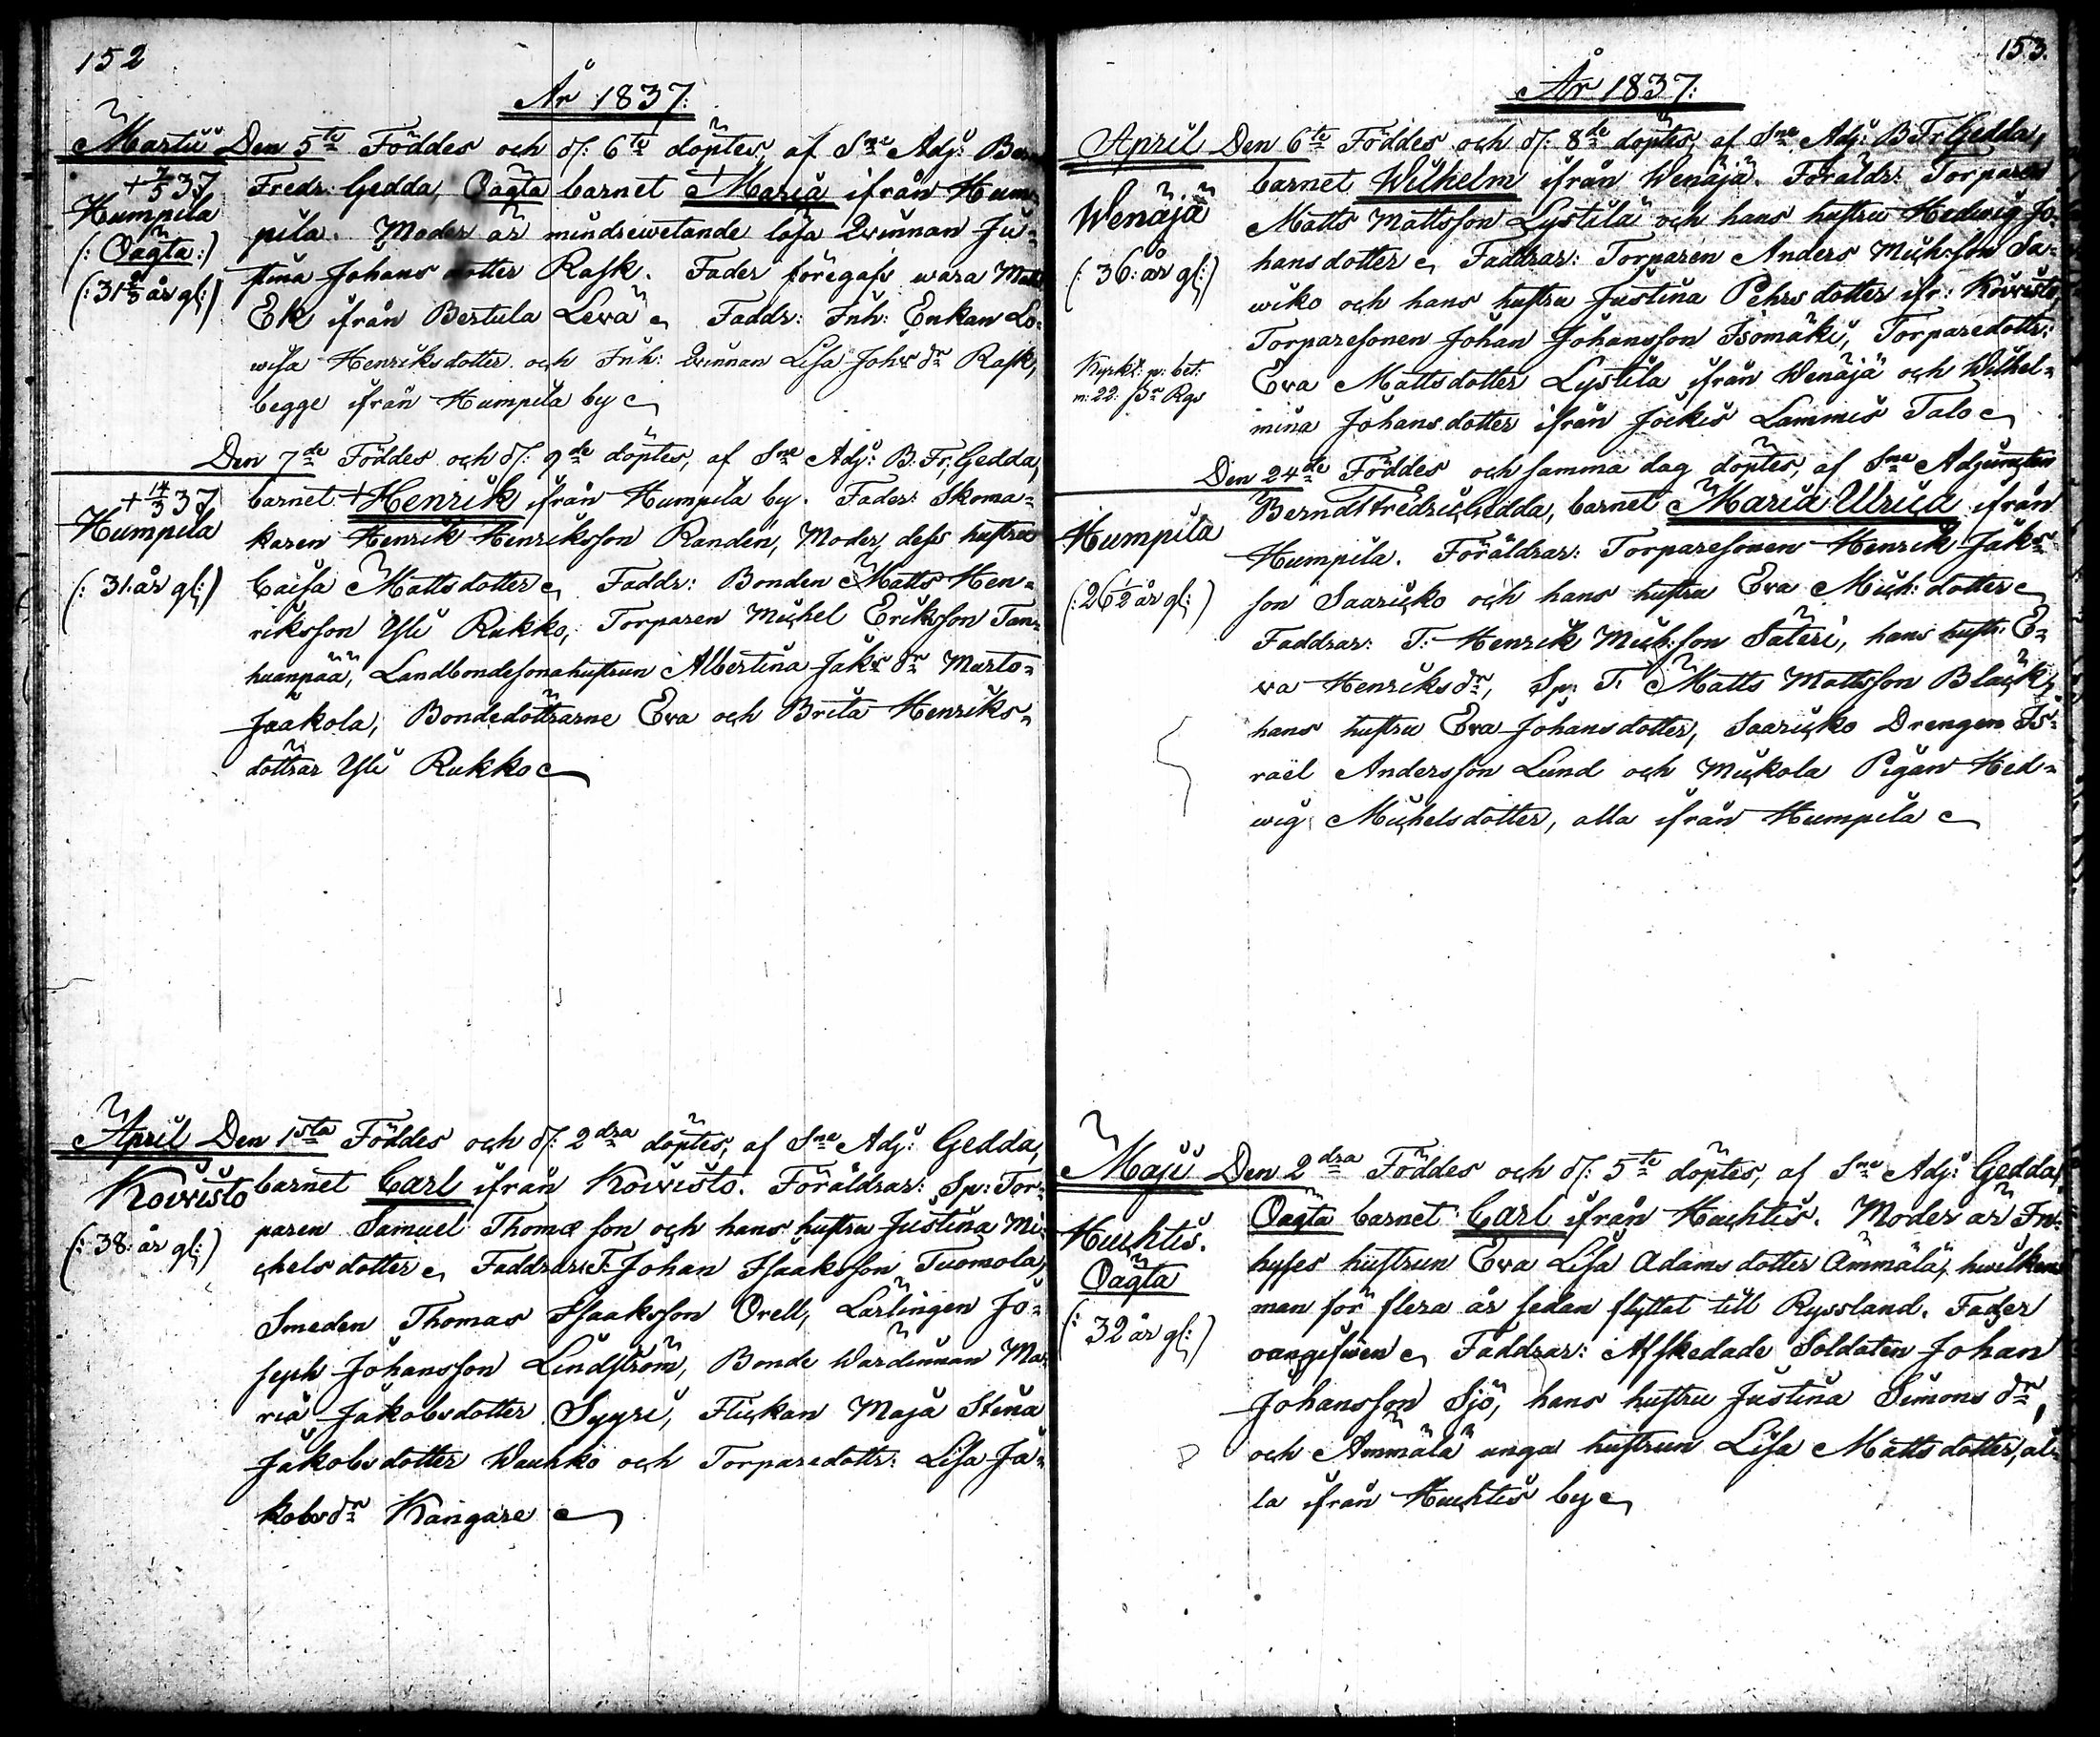 152
År 1837:
Martii Den 5te Föddes och d: 6te döptes, af Sne Adj: Ber
+ 7/5 37
Humpila
(: Oägta :)
(: 31 2/3 år gl:)
Fredr: Gedda, Oägta barnet + Maria ifrån Hum-
pila. Moder är mindrewetande lösa Qwinnan Ju-
stina Johansdotter Rask. Fader föregafs wara Matts
Ek ifrån Bertula Lewä. Faddr: Inh: Enkan Lo-
wisa Henriksdotter och Inh: Qwinnan Lisa Johsdr Rask,
begge ifrån Humpila by
Den 7de Föddes och d: 9de döptes, af Sne Adj: B: Fr: Gedda,
+ 14/3 37
Humpila
(: 31 år gl:)
barnet + Henrik ifrån Humpila by. Fader: Skoma-
karen Henrik Henriksson Randen, Moder, dess hustru
Caisa Mattsdotter. Faddr: Bonden Matts Hen-
riksson Yli Rukko, Torparen Michel Eriksson Tan-
huanpää, Landbondesonahustrun Albertina Jaksdr Marto-
Jaakola, Bondedöttrarne Eva och Brita Henriks-
döttrar Yli Rukko
April Den 1sta Föddes och d: 2dra döptes, af Sne Adj: Gedda,
Koiwisto
(: 38 år gl:)
barnet Carl ifrån Koiwisto. Föräldrar: Sp: Tor-
paren Samuel Thomæson och hans hustru Justina Mi-
chelsdotter. Faddrar: T: Johan Isaaksson Tuomola,
Smeden Thomas Isaaksson Orell, Lärlingen Jo-
seph Johansson Lindström, Bonde Wärdinnan Ma-
ria Jakobsdotter Syyri, Flickan Maja Stina
Jakobsdotter Wauhko och Torparedottr: Lisa Ja-
kobsdr Kangare
153.
År 1837:
April Den 6te Föddes och d: 8de döptes, af Sne Adj: B Fr Gedda,
Wenäjä
(: 36 år gl:)
Kyrkt: p: bet:
m: 22: Rgs
barnet Wilhelm ifrån Wenäjä. Föräldr: Torparen
Matts Mattsson Lystilä och hans hustru Hedwig Jo-
hansdotter. Faddrar: Torparen Anders Mich:son Sa-
wiko och hans hustru Justina Pehrsdotter ifr: Koiwisto,
Torparesonen Johan Johansson Isomäki, Torparedottr:
Eva Mattsdotter Lystilä ifrån Wenäjä och Wilhel-
mina Johansdotter ifrån Jockis Lammis Talo
Den 24de Föddes och samma dag döptes, af Sne Adjuncten
Humpila
(: 26 1/2 år gl:)
Berndt Fredric Gedda, barnet Maria Ulrica ifrån
Humpila. Föräldrar: Torparesonen Henrik Jaks-
son Saaricko och hans hustru Eva Mich:dotter
Faddrar: T: Henrik Mich:son Säteri, hans hustr: E-
va Henriksdr, Sp: T: Matts Mattsson Bläck,
hans hustru Eva Johansdotter, Saaricko Drengen Is-
raël Andersson Lund och Mickola Pigan Hed-
wig Michelsdotter, alla ifrån Humpila
Maji Den 2dra Föddes och d: 5te döptes, af Sne Adj: Gedda,
Huchtis.
Oägta
(: 32 år gl:)
Oägta barnet Carl ifrån Huchtis. Moder är In-
hyses hustrun Eva Lisa Adamsdotter Ammälä, hwilkens
man för flera år sedan flyttat till Ryssland. Fader
oangifwen. Faddrar: Afskedade Soldaten Johan
Johansson Sjö, hans hustru Justina Simonsdr,
och Ammälä unga hustrun Lisa Mattsdotter, al-
la ifrån Huchtis by